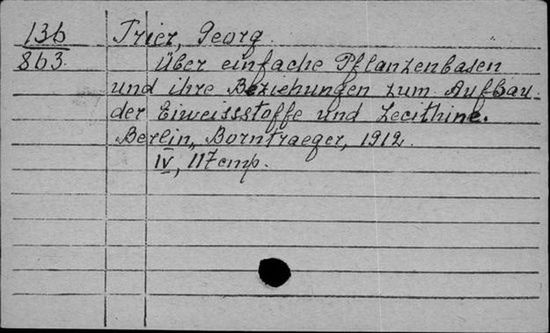 136 Trier, Georg.
863. Über einfache Pflanzenbasen
und ihre Beziehungen zum Aufbau
der Eiweissstoffe und Lecithine.
Berlin, Borntraeger, 1912.
IV, 117 cmp.